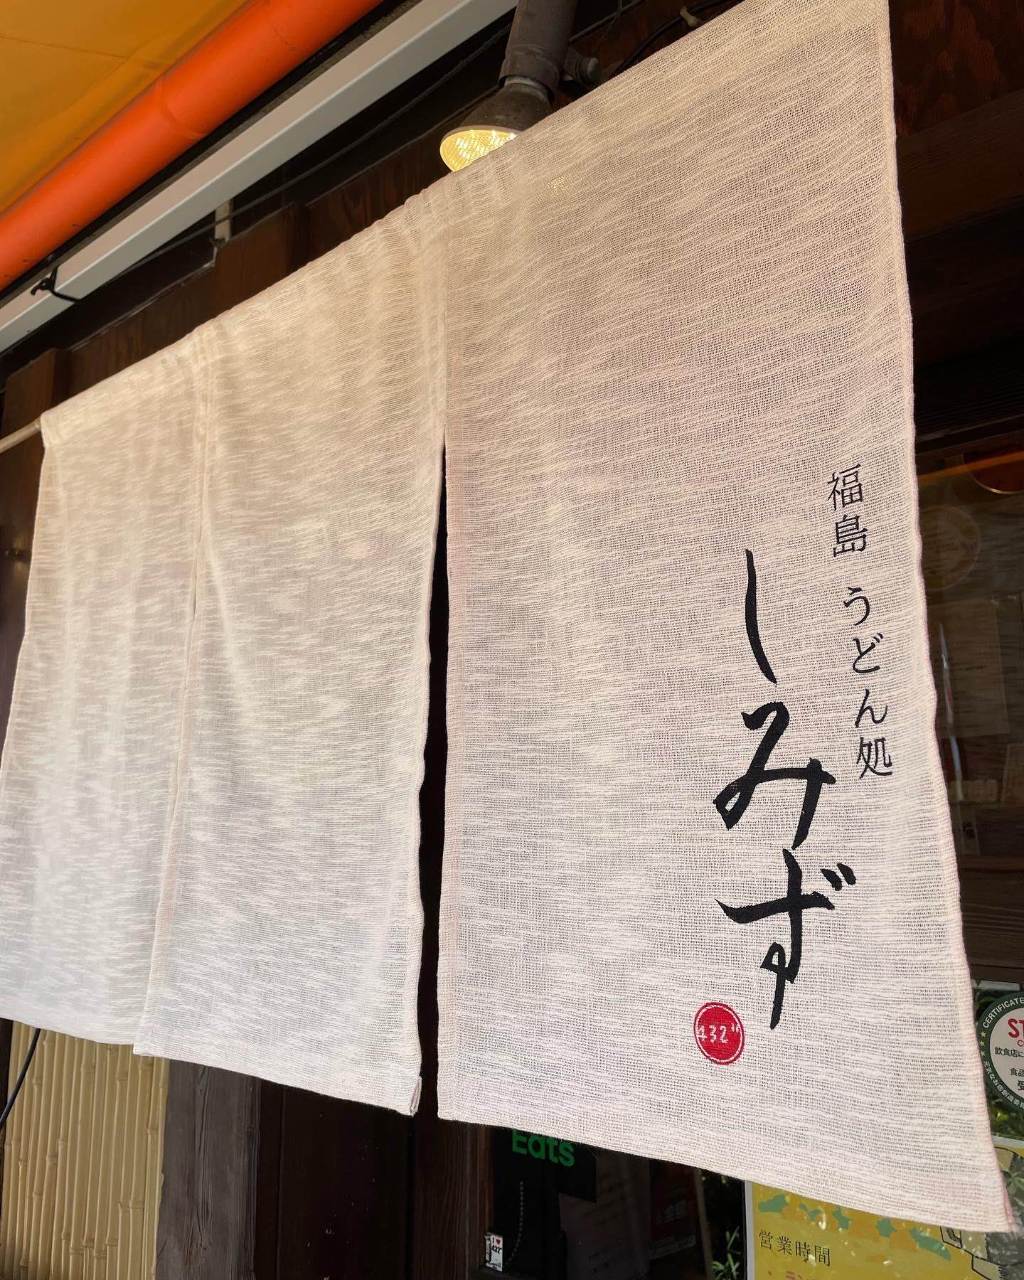 福島 うどん処
しみず
432"
Eats
営業時間
CERTIFICATE
ST
飲食店に
食品